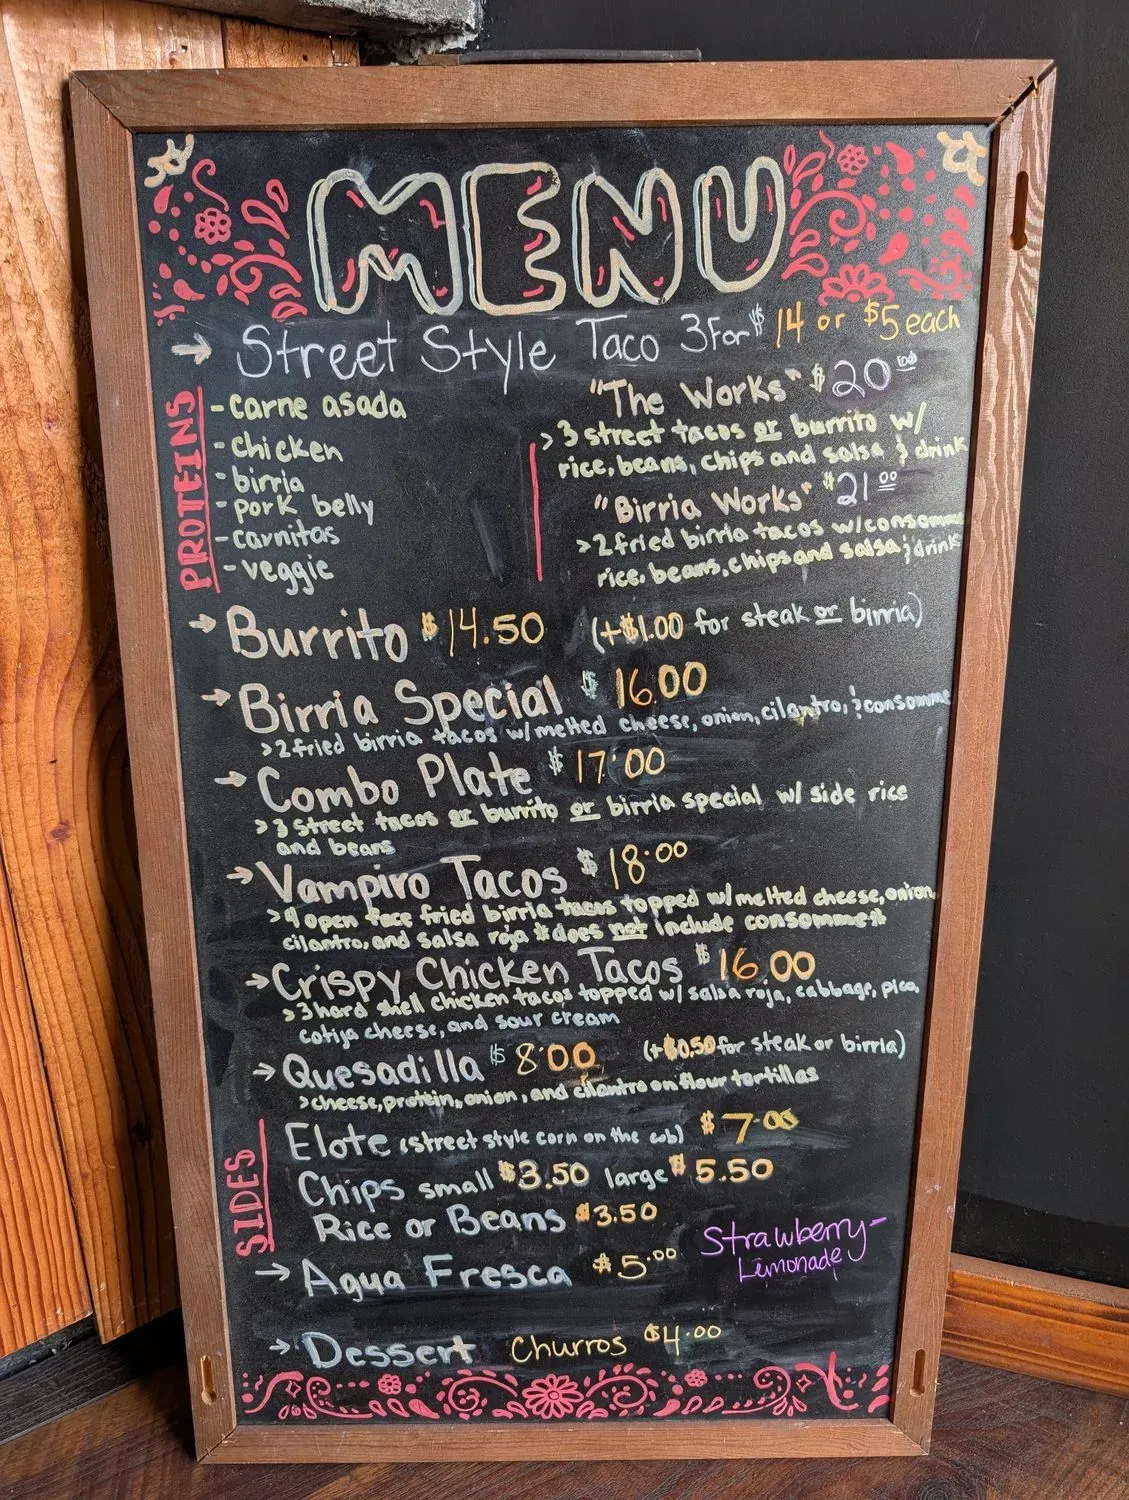 MENU
→ Street Style Taco 3 For $14 or $5 each
PROTEINS
- carne asada
- chicken
- birria
- pork belly
- carnitas
- veggie
"The Works" $20.00
> 3 street tacos or burrito w/
rice, beans, chips and salsa & drink
"Birria Works" $21.00
> 2 fried birria tacos w/consomm
rice, beans, chips and salsa & drink
→ Burrito $14.50 (+$1.00 for steak or birria)
→ Birria Special $16.00
> 2 fried birria tacos w/melted cheese, onion, cilantro, & consomme
→ Combo Plate $17.00
> 3 street tacos or burrito or birria special w/ side rice
and beans
→ Vampiro Tacos $18.00
> 4 open face fried birria tacos topped w/melted cheese, onion,
cilantro, and salsa roja *does not include consomme*
→ Crispy Chicken Tacos $16.00
> 3 hard shell chicken tacos topped w/ salsa roja, cabbage, pico,
cotija cheese, and sour cream
→ Quesadilla $8.00 (+$0.50 for steak or birria)
> cheese, protein, onion, and cilantro on flour tortillas
SIDES
Elote (street style corn on the cob) $7.00
Chips small $3.50 large $5.50
Rice or Beans $3.50
→ Agua Fresca $5.00
Strawberry-
Lemonade
→ Dessert Churros $4.00